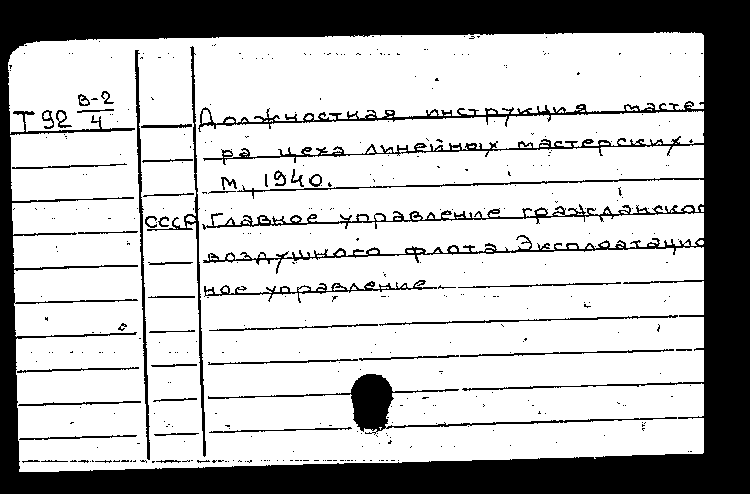 Т 92 В-2/4
Должностная инструкция масте-
ра цеха линейных мастерских.
М., 1940.
СССР. Главное управление гражданског
воздушного флота. Эксплоатацио
ное управление.